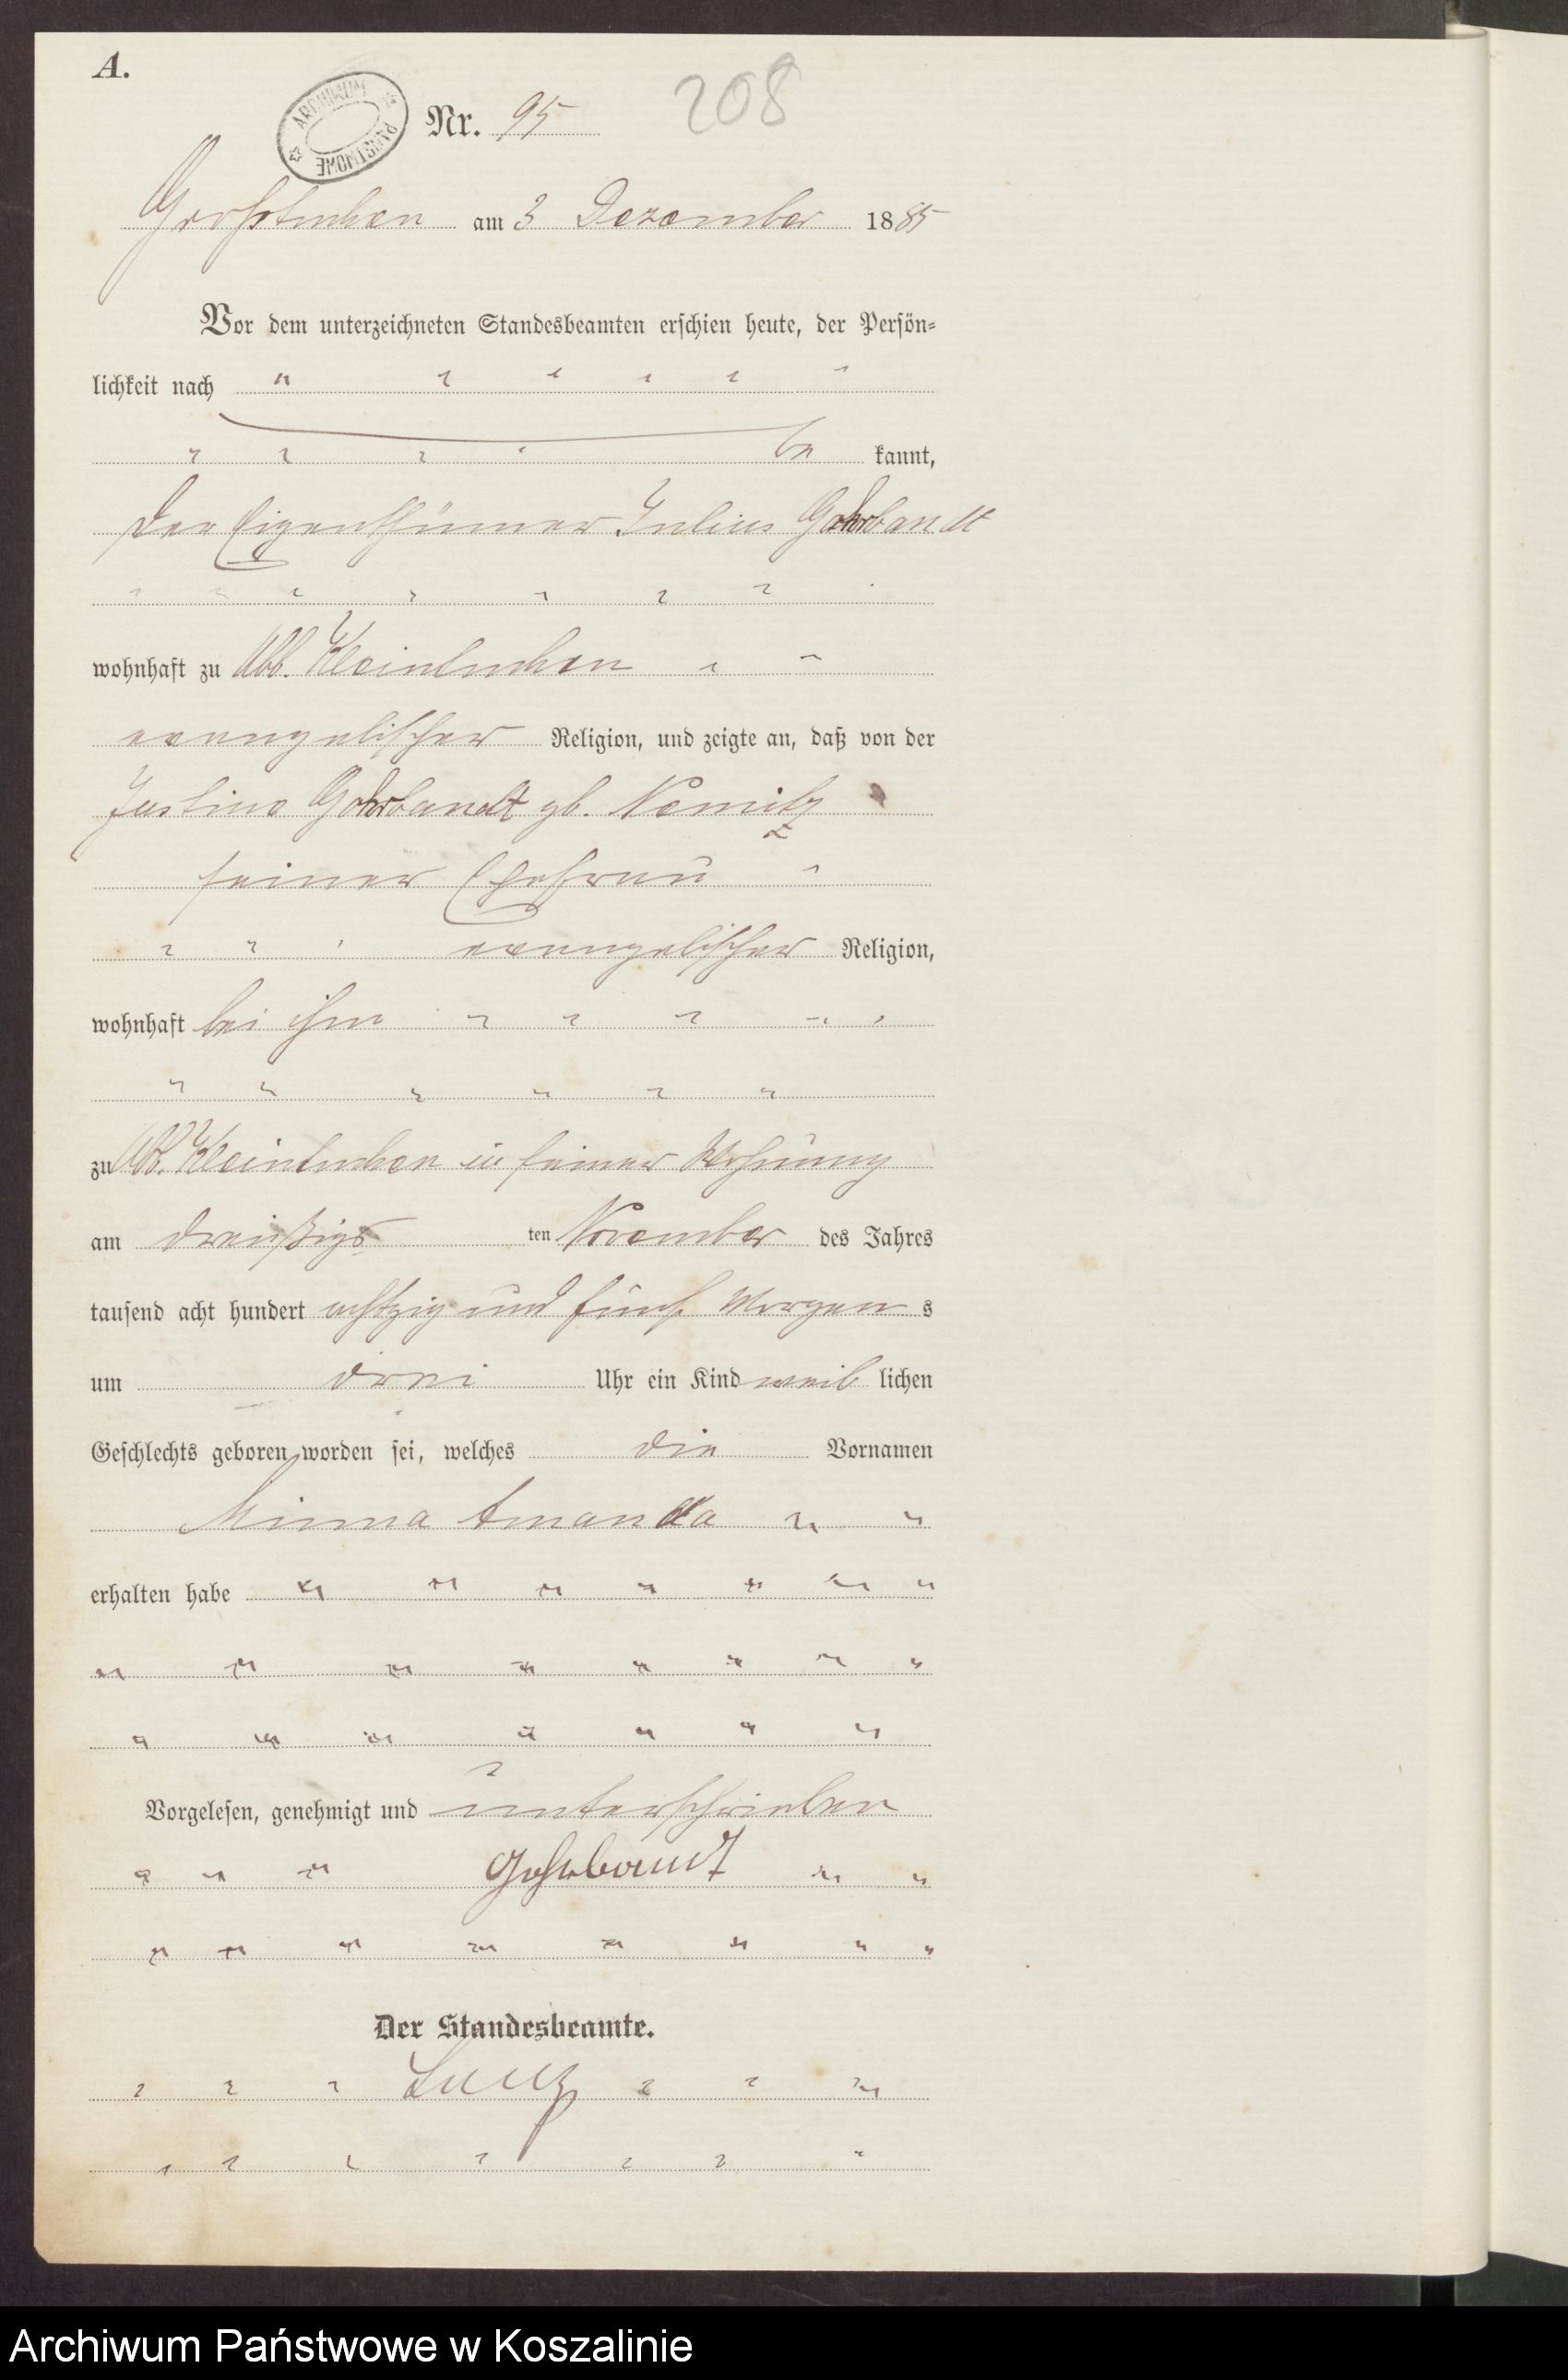 A.
ARCHIWUM PAŃSTWOWE
Nr. 95
208
Großtuchen am 3 Dezember 1885
Vor dem unterzeichneten Standesbeamten erschien heute, der Persön=
lichkeit nach
be kannt,
der Eigenthümer Julius Gohrbandt
wohnhaft zu Abb. Kleintuchen
evangelischer Religion, und zeigte an, daß von der
Justine Gohrbandt gb. Nemitz
seiner Ehefrau
evangelischer Religion,
wohnhaft bei ihm
zu Abb. Kleintuchen in seiner Wohnung
am dreißigs ten November des Jahres
tausend acht hundert achtzig und fünf Morgen s
um drei Uhr ein Kind weib lichen
Geschlechts geboren worden sei, welches die Vornamen
Minna Amanda
erhalten habe
Vorgelesen, genehmigt und unterschrieben
Gohrbandt
Der Standesbeamte.
Archiwum Państwowe w Koszalinie